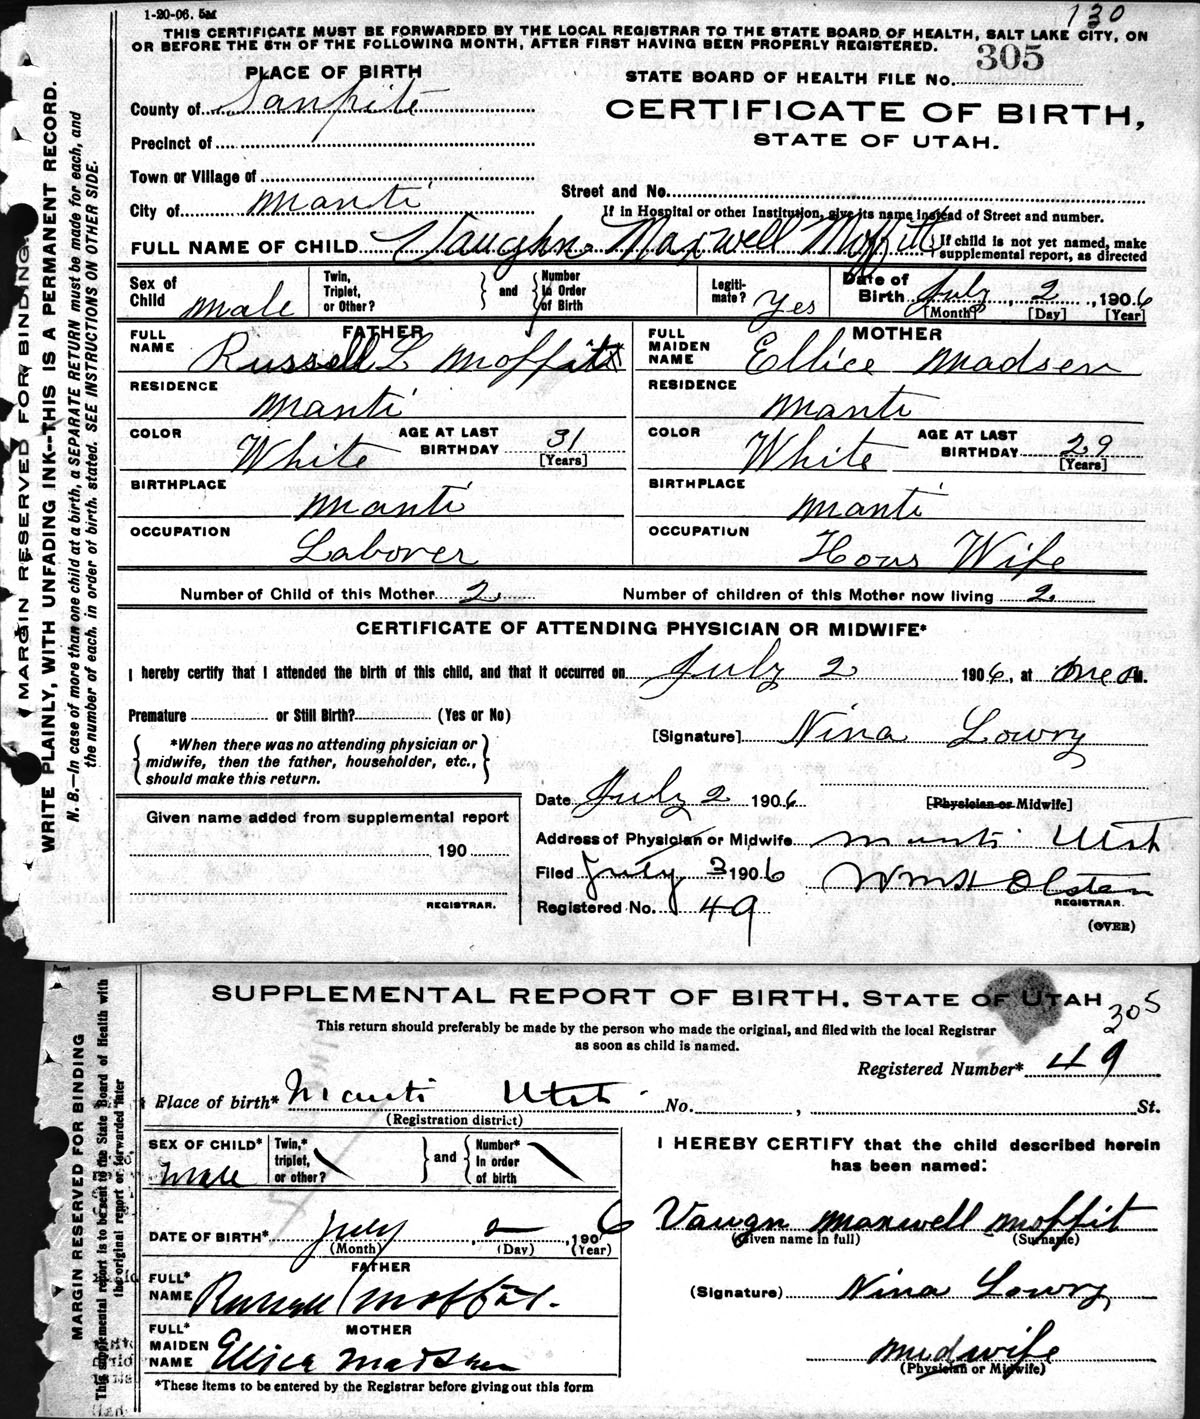 1-20-06. 5M
130
THIS CERTIFICATE MUST BE FORWARDED BY THE LOCAL REGISTRAR TO THE STATE BOARD OF HEALTH, SALT LAKE CITY, ON
OR BEFORE THE 5TH OF THE FOLLOWING MONTH, AFTER FIRST HAVING BEEN PROPERLY REGISTERED.
MARGIN RESERVED FOR BINDING.
WRITE PLAINLY, WITH UNFADING INK--THIS IS A PERMANENT RECORD.
N. B.—In case of more than one child at a birth, a SEPARATE RETURN must be made for each, and
the number of each, in order of birth, stated. SEE INSTRUCTIONS ON OTHER SIDE.
PLACE OF BIRTH
STATE BOARD OF HEALTH FILE NO. 305
County of Sanpite
CERTIFICATE OF BIRTH,
STATE OF UTAH.
Precinct of
Town or Village of
Street and No.
City of Manti
If in Hospital or other Institution, give its name instead of Street and number.
FULL NAME OF CHILD Vaughn Maxwell Moffitt
If child is not yet named, make
supplemental report, as directed
Sex of Child male
Twin, Triplet, or Other?
and
Number in Order of Birth
Legiti-mate? Yes
Date of Birth July 2, 1906
[Month] [Day] [Year]
FATHER
FULL NAME Russell L Moffitt
MOTHER
FULL MAIDEN NAME Ellice Madsen
RESIDENCE Manti
RESIDENCE Manti
COLOR White AGE AT LAST BIRTHDAY 31 [Years]
COLOR White AGE AT LAST BIRTHDAY 29 [Years]
BIRTHPLACE Manti
BIRTHPLACE Manti
OCCUPATION Laborer
OCCUPATION Hous Wife
Number of Child of this Mother 2
Number of children of this Mother now living 2
CERTIFICATE OF ATTENDING PHYSICIAN OR MIDWIFE*
I hereby certify that I attended the birth of this child, and that it occurred on July 2 1906, at one a M.
Premature or Still Birth? (Yes or No)
*When there was no attending physician or
midwife, then the father, householder, etc.,
should make this return.
[Signature] Nina Lowry
Date July 2 1906
[Physician or Midwife]
Given name added from supplemental report
190
REGISTRAR.
Address of Physician or Midwife Manti Utah
Filed July 3 1906
Wm H Olsten
REGISTRAR.
Registered No. 49
(OVER)
MARGIN RESERVED FOR BINDING
This supplemental report is to be sent to the State Board of Health with
the original report or forwarded later
SUPPLEMENTAL REPORT OF BIRTH, STATE OF UTAH
305
This return should preferably be made by the person who made the original, and filed with the local Registrar
as soon as child is named.
Registered Number* 49
Place of birth* Manti Utah No. , St.
(Registration district)
SEX OF CHILD* Male
Twin,* triplet, or other?
and
Number* in order of birth
I HEREBY CERTIFY that the child described herein
has been named:
DATE OF BIRTH* July, 2, 1906
(Month) (Day) (Year)
Vaugn Maxwell Moffit
(Given name in full) (Surname)
FATHER
FULL* NAME Russell Moffit.
(Signature) Nina Lowry
MOTHER
FULL* MAIDEN NAME Ellice Madsen
Midwife
(Physician or Midwife)
*These items to be entered by the Registrar before giving out this form